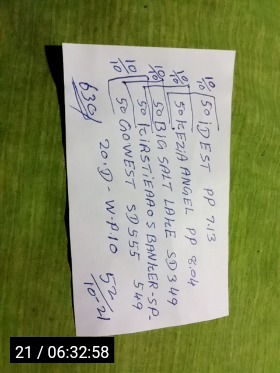 10/10 50 DEST PP 713
10/10 50 KEZIA ANGEL PP 804
10/10 50 BIG SALT LAKE SD 349
10/10 50 KIRSTIE AAOS BANKER-SP-549
10/10 50 GO WEST SD 555
20.D-W-P10 52/10.21
630/
21 / 06:32:58